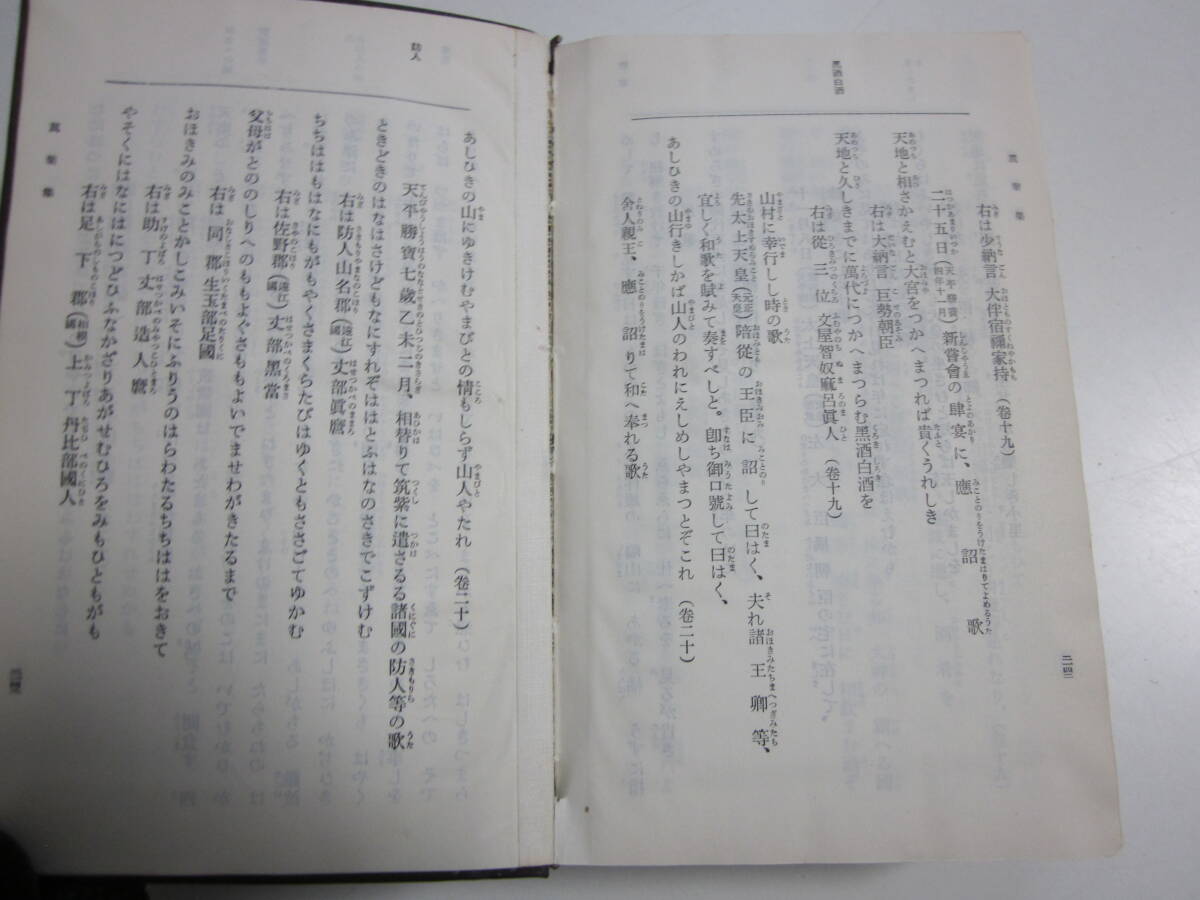 黒酒白酒
萬葉集
右は少納言大伴宿禰家持（卷十九）
二十五日（天平勝寶四年十一月）新嘗會の肆宴に、應詔歌
天地と相さかえむと大宮をつかへまつれば貴くうれしき
右は大納言巨勢朝臣
天地と久しきまでに萬代につかへまつらむ黒酒白酒を
右は從三位文屋智奴麻呂眞人（卷十九）
山村に幸行しし時の歌
先太上天皇（元正天皇）陪從の王臣に詔して曰はく、夫れ諸王卿等、
宜しく和歌を賦みて奏すべしと。卽ち御口號して曰はく、
あしひきの山行きしかば山人のわれにえしめしやまつとぞこれ（卷二十）
舍人親王、應詔りて和へ奉れる歌
二四二
防人
あしひきの山にゆきけむやまびとの情もしらず山人やたれ（卷二十）
天平勝寶七歳乙未二月、相替りて筑紫に遣さるる諸國の防人等の歌
ときどきのはなはさけどもなにすれぞははとふはなのさきでこずけむ
右は防人山名郡（遠江國）丈部眞麿
ちちははもはなにもがもやくさまくらたびはゆくともささごてゆかむ
右は佐野郡（遠江國）丈部黒當
父母がとののしりへのももよぐさももよいでませわがきたるまで
右は同郡生玉部足國
おほきみのみことかしこみいそにふりうのはらわたるちちははをおきて
右は助丁丈部造人麿
やそくにはなにはにつどひふなかざりあがせむひろをみもひともがも
右は足下郡（相模國）上丁丹比部國人
萬葉集
二四三